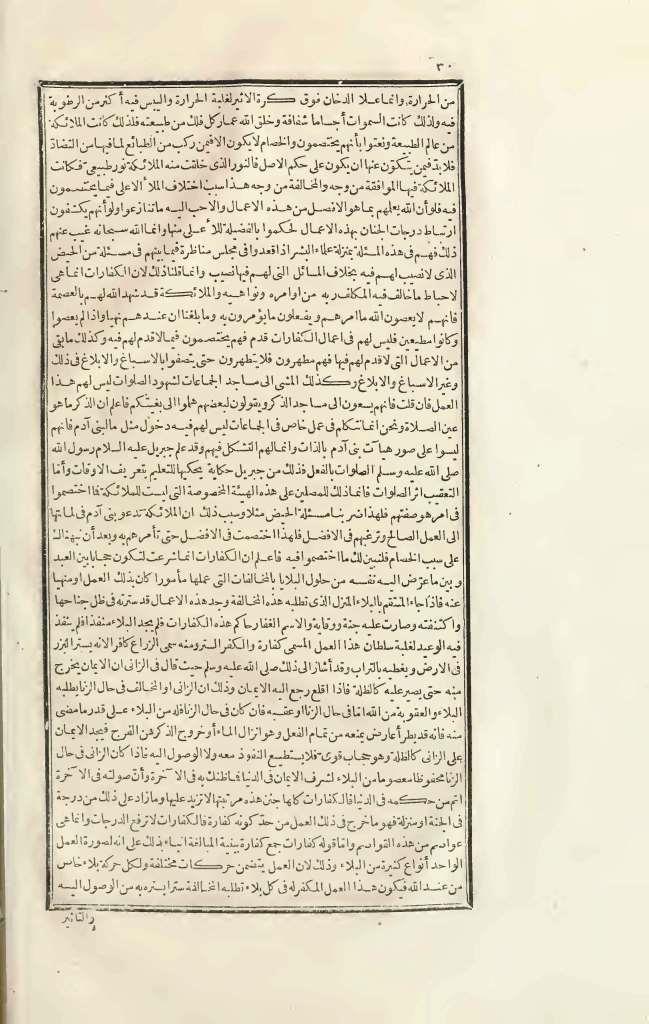 ٣٠
من الحرارة وانما علا الدخان فوق كرة الاثير لغلبة الحرارة واليبس فيه أكثر من الرطوبة
فيه ولذلك كانت السموات أجساما شفافة وخلق الله عمار كل فلك من طبيعته فلذلك كانت الملائكة
من عالم الطبيعة ونعتوا بأنهم يختصمون والخصام لا يكون الا فيمن ركب من الطبائع لما فيها من التضاد
فلا بد فيمن يتكون عنها ان يكون على حكم الاصل فالنور الذى خلقت منه الملائكة نور طبيعى فكانت
الملائكة فيها الموافقة من وجه والمخالفة من وجه هذا سبب اختلاف الملأ الاعلى فيما يختصمون
فيه فلو أن الله يعلمهم بما هو الافضل من هذه الاعمال والاحب اليه ما تنازعوا ولو أنهم يكشفون
ارتباط درجات الجنان بهذه الاعمال لحكموا بالفضيلة للأعلى منها وانما الله سبحانه غيب عنهم
ذلك فهم فى هذه المسئلة بمنزلة علماء البشر اذا قعدوا فى مجلس مناظرة فيما بينهم فى مسئلة من الحيض
الذى لا نصيب لهم فيه بخلاف المسائل التى لهم فيها نصيب وانما قلنا ذلك لان الكفارات انما هى
لاحباط ما خالف فيه المكلف ربه من اوامره ونواهيه والملائكة قد شهد الله لهم بالعصمة
فانهم لا يعصون الله ما امرهم ويفعلون ما يؤمرون به وما بلغنا ان عندهم نهيا واذا لم يعصوا
وكانوا مطيعين فليس لهم فى اعمال الكفارات قدم فهم يختصمون فيما لا قدم لهم فيه وكذلك ما بقى
من الاعمال التى لا قدم لهم فيها فهم مطهرون فلا يتطهرون حتى يتصفوا بالاسباغ والابلاغ فى ذلك
وغير الاسباغ والابلاغ وكذلك المشى الى مساجد الجماعات لشهود الصلوات ليس لهم هذا
العمل فان قلت فانهم يسعون الى مساجد الذكر ويقولون لبعضهم هلموا الى بغيتكم فاعلم ان الذكر ما هو
عين الصلاة ونحن انما نتكلم فى عمل خاص فى الجماعات ليس لهم فيه دخول مثل ما لبنى آدم فانهم
ليسوا على صور هيآت بنى آدم بالذات وانما لهم التشكل فيهم وقد علم جبريل عليه السلام رسول الله
صلى الله عليه وسلم الصلوات بالفعل فذلك من جبريل حكاية يحكيها للتعليم بتعريف الاوقات وأما
التعقيب اثر الصلوات فانما ذلك للمصلين على هذه الهيئة المخصوصة التى ليست للملائكة فما اختصموا
فى امر هو صفتهم فلهذا ضربنا مسئلة الحيض مثلا وسبب ذلك ان الملائكة تدعو بنى آدم فى لماتها
الى العمل الصالح وترغبهم فى الافضل فلهذا اختصمت فى الافضل حتى تأمرهم به وبعد أن نبهتك
على سبب الخصام فلنبين لك ما اختصموا فيه فاعلم ان الكفارات انما شرعت لتكون حجابا بين العبد
وبين ما عرّض اليه نفسه من حلول البلايا بالمخالفات التى عملها مأمورا كان بذلك العمل او منهيا
عنه فاذا جاء المنتقم بالبلاء المنزل الذى تطلبه هذه المخالفة وجد هذه الاعمال قد سترته فى ظل جناحها
واكتنفته وصارت عليه جنة ووقاية والاسم الغفار حاكم هذه الكفارات فلم يجد البلاء منفذا فلم ينفذ
فيه الوعيد لغلبة سلطان هذا العمل المسمى كفارة والكفر الستر ومنه سمى الزراع كافرا لانه يستر البزر
فى الارض ويغطيه بالتراب وقد أشار الى ذلك صلى الله عليه وسلم حيث قال فى الزانى ان الايمان يخرج
منه حتى يصير عليه كالظلة فاذا اقلع رجع اليه الايمان وذلك ان الزانى او المخالف فى حال الزنا يطلبه
البلاء والعقوبة من الله امّا فى حال الزنا او عقبه فان كان فى حال الزنا فله من البلاء على قدر ما مضى
منه فانه قد يطرأ عارض يمنعه من تمام الفعل وهو انزال الماء أو خروج الذكر من الفرج فيجد الايمان
على الزانى كالظلة وهو حجاب قوىّ فلا يستطيع النفوذ معه ولا الوصول اليه فاذا كان الزانى فى حال
الزنا محفوظا معصوما من البلاء لشرف الايمان فى الدنيا فما ظنك به فى الآخرة وأن صولته فى الآخرة
اتم من حكمه فى الدنيا فالكفارات كلها جنن هذه مرتبتها لا تزيد عليها وما زاد على ذلك من درجة
فى الجنة او منزلة فهو ما خرج فى ذلك العمل من حد كونه كفارة فالكفارات لا ترفع الدرجات وانما هى
عواصم من هذه القواصم وامّا قوله كفارات جمع كفارة ببنية المبالغة انباء بذلك على انه لصورة العمل
الواحد أنواع كثيرة من البلاء وذلك لان العمل يتضمن حركات مختلفة ولكل حركة بلاء خاص
من عند الله فيكون هذا العمل المكفر له فى كل بلاء تطلبه المخالفة سترا يستره به من الوصول اليه
والتأثير